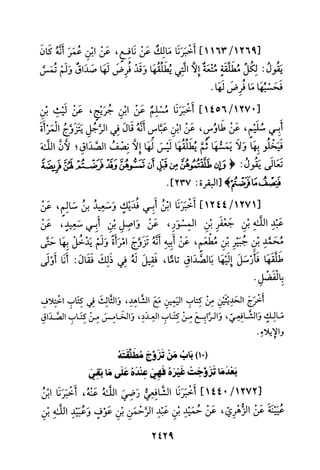 [١١٦٣/١٢٦٩] أَخْبَرَنَا مَالِكٌ عَنْ نَافِعٍ، عَنْ ابْنِ عُمَرَ أَنَّهُ كَانَ
يَقُولُ: لِكُلِّ مُطَلَّقَةٍ مُتْعَةٌ إِلَّا الَّتِي يُطَلِّقُهَا وَقَدْ فُرِضَ لَهَا صَدَاقٌ وَلَمْ تُمَسَّ
فَحَسْبُهَا مَا فُرِضَ لَهَا.
[١٤٥٦/١٢٧٠] أَخْبَرَنَا مُسْلِمٌ عَنْ ابْنِ جُرَيْجٍ، عَنْ لَيْثِ بْنِ
أَبِي سُلَيْمٍ، عَنْ طَاوُسٍ، عَنْ ابْنِ عَبَّاسٍ أَنَّهُ قَالَ فِي الرَّجُلِ يَتَزَوَّجُ الْمَرْأَةَ
فَيَخْلُو بِهَا وَلَا يَمَسُّهَا ثُمَّ يُطَلِّقُهَا لَيْسَ لَهَا إِلَّا نِصْفُ الصَّدَاقِ؛ لأَنَّ اللَّهَ
تَعَالَى يَقُولُ: ﴿وَإِن طَلَّقْتُمُوهُنَّ مِن قَبْلِ أَن تَمَسُّوهُنَّ وَقَدْ فَرَضْتُمْ لَهُنَّ فَرِيضَةً
فَنِصْفُ مَا فَرَضْتُمْ﴾ [البقرة: ٢٣٧].
[١٢٤٤/١٢٧١] أَخْبَرَنَا ابْنُ أَبِي فُدَيْكٍ وَسَعِيدُ بنُ سَالِمٍ، عَنْ
عَبْدِ اللَّهِ بْنِ جَعْفَرِ بْنِ الْمِسْوَرِ، عَنْ وَاصِلِ بْنِ أَبِي سَعِيدٍ، عَنْ
مُحَمَّدِ بْنِ جُبَيْرِ بْنِ مُطْعِمٍ، عَنْ أَبِيهِ أَنَّهُ تَزَوَّجَ امْرَأَةً وَلَمْ يَدْخُلْ بِهَا حَتَّى
طَلَّقَهَا فَأَرْسَلَ إِلَيْهَا بِالصَّدَاقِ تَامًّا، فَقِيلَ لَهُ فِي ذَلِكَ فَقَالَ: أَنَا أَوْلَى
بِالْفَضْلِ.
أخْرَجَ الحَدِيثَيْنِ مِنْ كِتَابِ اليَمِينِ مَعَ الشَّاهِدِ، وَالثَّالِثَ فِي كِتَابِ اخْتِلَافِ
مَالِكٍ وَالشَّافِعِيِّ، وَالرَّابِعَ مِنْ كِتَابِ العِدَدِ، وَالخَامِسَ مِنْ كِتَابِ الصَّدَاقِ
والإيلاءِ.
(١٠) بَابُ مَنْ تَزَوَّجَ مُطَلَّقَتَهُ
بَعْدَمَا تَزَوَّجَتْ غَيْرَهُ فَهِيَ عِنْدَهُ عَلَى مَا بَقِيَ
[١٤٤٠/١٢٧٢] أَخْبَرَنَا الشَّافِعِيُّ رَضِيَ اللَّهُ عَنْهُ، أَخْبَرَنَا ابْنُ
عُيَيْنَةَ عَنْ الزُّهْرِيِّ، عَنْ حُمَيْدِ بْنِ عَبْدِ الرَّحْمَنِ بْنِ عَوْفٍ وَعُبَيْدِ اللَّهِ بْنِ
٢٤٢٩